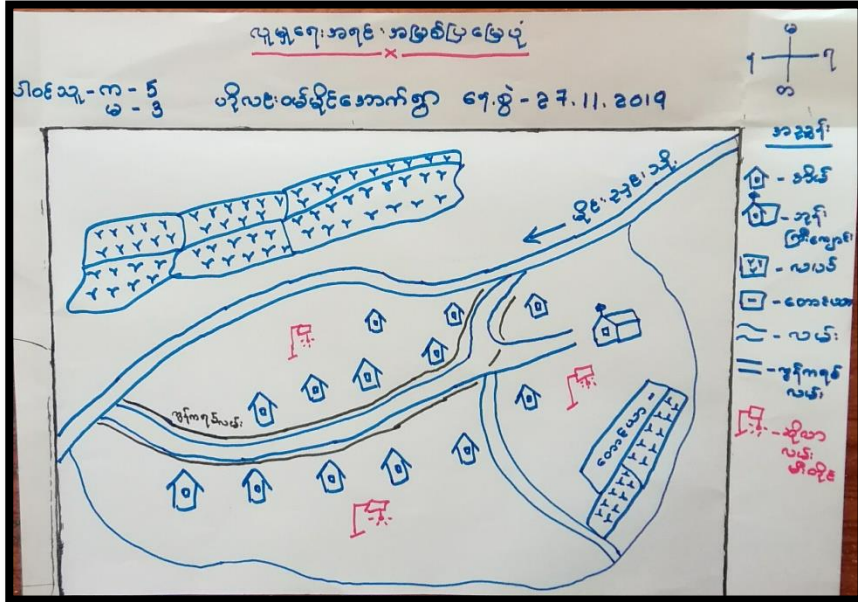 လူမှုရေးအရင်းအမြစ်ပြမြေပုံ
ပါဝင်သူ - က - 5
မ - 3
ဟိုလင်းဝမ်မိုင်အောက်ရွာ ရေးဆွဲ - 27.11.2019
မ
၅ ၇
တ
အညွှန်း
- အိမ်
- ဘုန်း
ကြီးကျောင်း
- လယ်
- တောင်ယာ
- လမ်း
- ကွန်ကရစ်
လမ်း
- ဆိုလာ
လမ်း
မီးတိုင်
ကွန်ကရစ်လမ်း